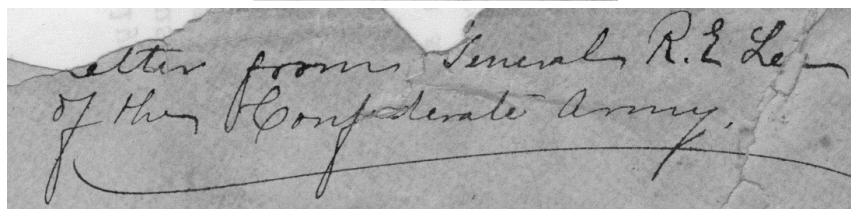 etter from General R. E. Lee
of the Confederate Army.